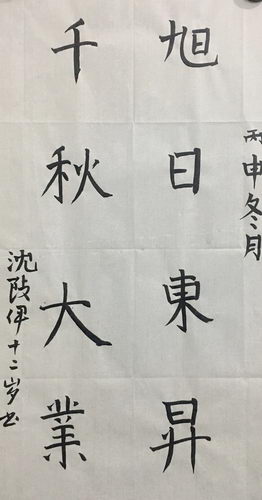 丙申冬月
旭日東昇
千秋大業
沈段伊十二岁书